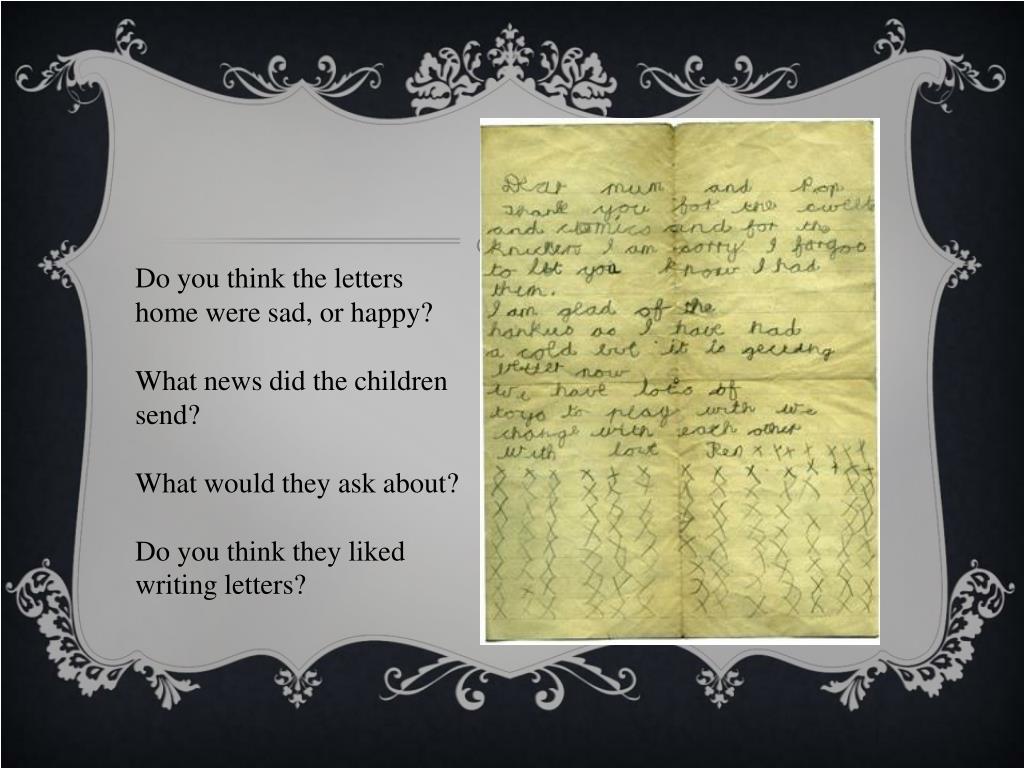 Do you think the letters
home were sad, or happy?
What news did the children
send?
What would they ask about?
Do you think they liked
writing letters?
Dear mum and Pop
Thank you for the
and comics and for the
knickers I am sorry I forgoo
to let you know I had
them.
I am glad of the
hankies as I have had
a cold but it is getting
better now
We have lots of
toys to play with we
change with each other
With love xxxx xxx